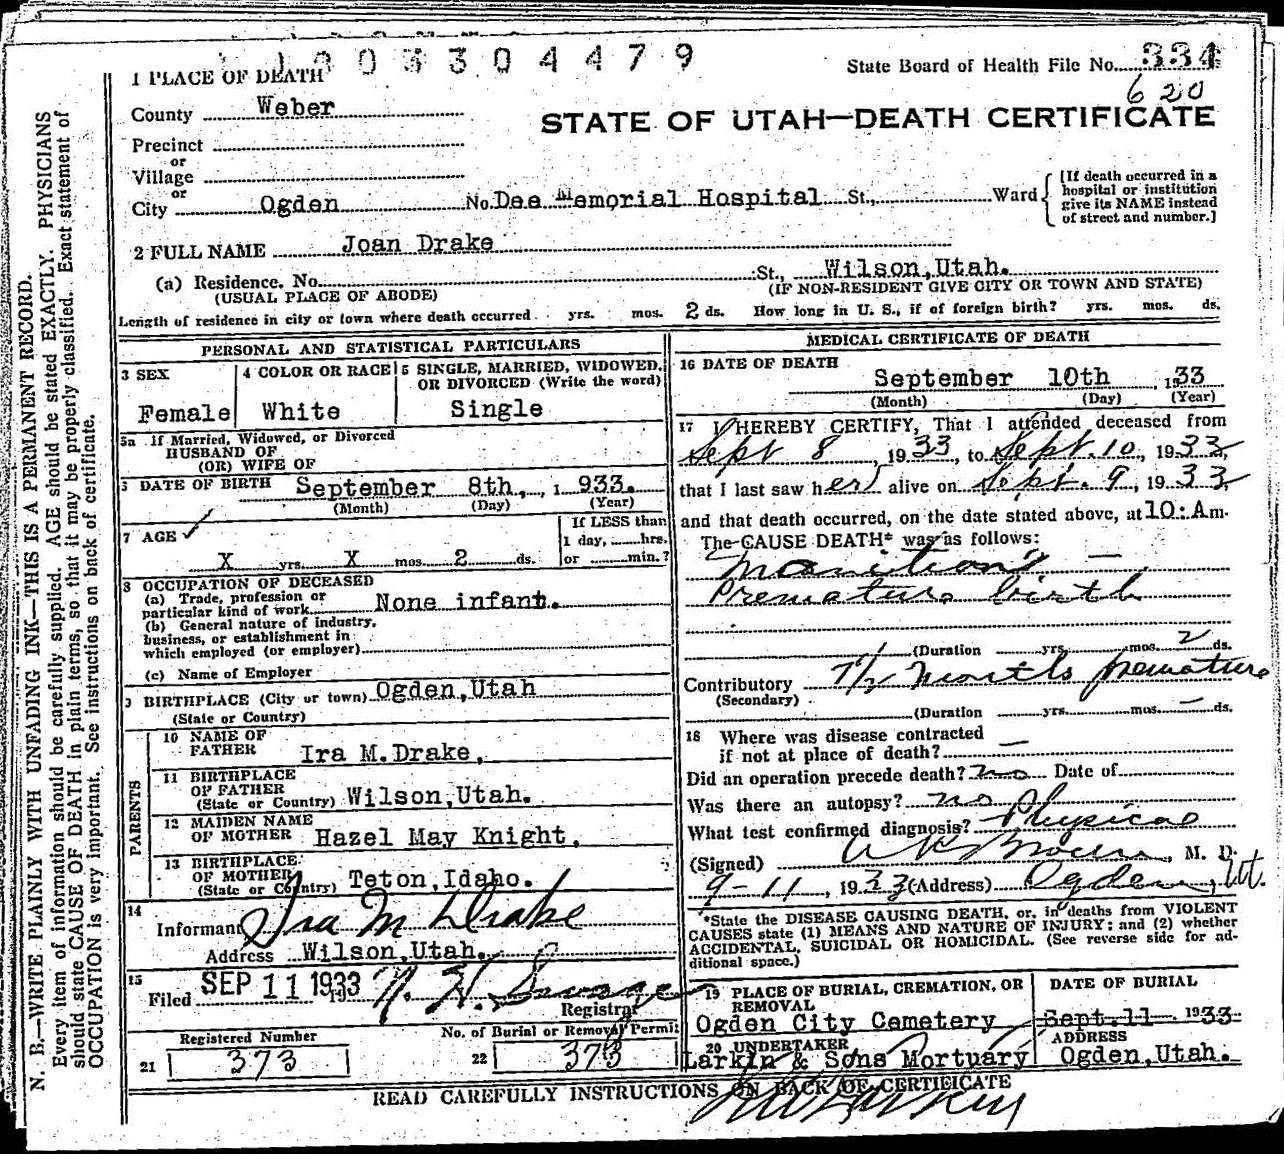 3 3 0 4 4 7 9
State Board of Health File No. 334
620
1 PLACE OF DEATH
County Weber
STATE OF UTAH—DEATH CERTIFICATE
Precinct
or
Village
or
City Ogden No. Dee Memorial Hospital St., Ward
[If death occurred in a hospital or institution give its NAME instead of street and number.]
2 FULL NAME Joan Drake
(a) Residence. No. St., Wilson, Utah.
(USUAL PLACE OF ABODE) (IF NON-RESIDENT GIVE CITY OR TOWN AND STATE)
Length of residence in city or town where death occurred yrs. mos. 2 ds. How long in U. S., if of foreign birth? yrs. mos. ds.
PERSONAL AND STATISTICAL PARTICULARS
3 SEX
Female
4 COLOR OR RACE
White
5 SINGLE, MARRIED, WIDOWED,
OR DIVORCED (Write the word)
Single
5a If Married, Widowed, or Divorced
HUSBAND OF
(OR) WIFE OF
DATE OF BIRTH September 8th, 1933.
(Month) (Day) (Year)
7 AGE
X yrs. X mos. 2 ds.
If LESS than
1 day, hrs.
or min.?
8 OCCUPATION OF DECEASED
(a) Trade, profession or
particular kind of work None infant.
(b) General nature of industry,
business, or establishment in
which employed (or employer)
(c) Name of Employer
9 BIRTHPLACE (City or town) Ogden, Utah
(State or Country)
PARENTS
10 NAME OF
FATHER Ira M. Drake,
11 BIRTHPLACE
OF FATHER
(State or Country) Wilson, Utah.
12 MAIDEN NAME
OF MOTHER Hazel May Knight,
13 BIRTHPLACE
OF MOTHER
(State or Country) Teton, Idaho.
14
Informant Ira M Drake
Address Wilson, Utah.
15
Filed SEP 11 1933
Registrar
Registered Number
21 373
No. of Burial or Removal Permit
22 373
MEDICAL CERTIFICATE OF DEATH
16 DATE OF DEATH
September 10th, 1933
(Month) (Day) (Year)
17 I HEREBY CERTIFY, That I attended deceased from
Sept 8, 1933, to Sept. 10, 1933,
that I last saw her alive on Sept. 9, 1933,
and that death occurred, on the date stated above, at 10: Am.
The CAUSE DEATH* was as follows:
Premature birth
(Duration yrs. mos. 2 ds.
Contributory 7½ months premature
(Secondary)
(Duration yrs. mos. ds.
18 Where was disease contracted
if not at place of death? —
Did an operation precede death? no Date of
Was there an autopsy? no
What test confirmed diagnosis? Physical
(Signed) M. D.
9-11, 1933 (Address) Ogden, Ut.
*State the DISEASE CAUSING DEATH, or, in deaths from VIOLENT
CAUSES state (1) MEANS AND NATURE OF INJURY; and (2) whether
ACCIDENTAL, SUICIDAL OR HOMICIDAL. (See reverse side for ad-
ditional space.)
19 PLACE OF BURIAL, CREMATION, OR
REMOVAL
Ogden City Cemetery
DATE OF BURIAL
Sept. 11 1933
20 UNDERTAKER
Larkin & Sons Mortuary
ADDRESS
Ogden, Utah.
READ CAREFULLY INSTRUCTIONS ON BACK OF CERTIFICATE
N. B.—WRITE PLAINLY WITH UNFADING INK—THIS IS A PERMANENT RECORD.
Every item of information should be carefully supplied. AGE should be stated EXACTLY. PHYSICIANS
should state CAUSE OF DEATH in plain terms, so that it may be properly classified. Exact statement of
OCCUPATION is very important. See instructions on back of certificate.